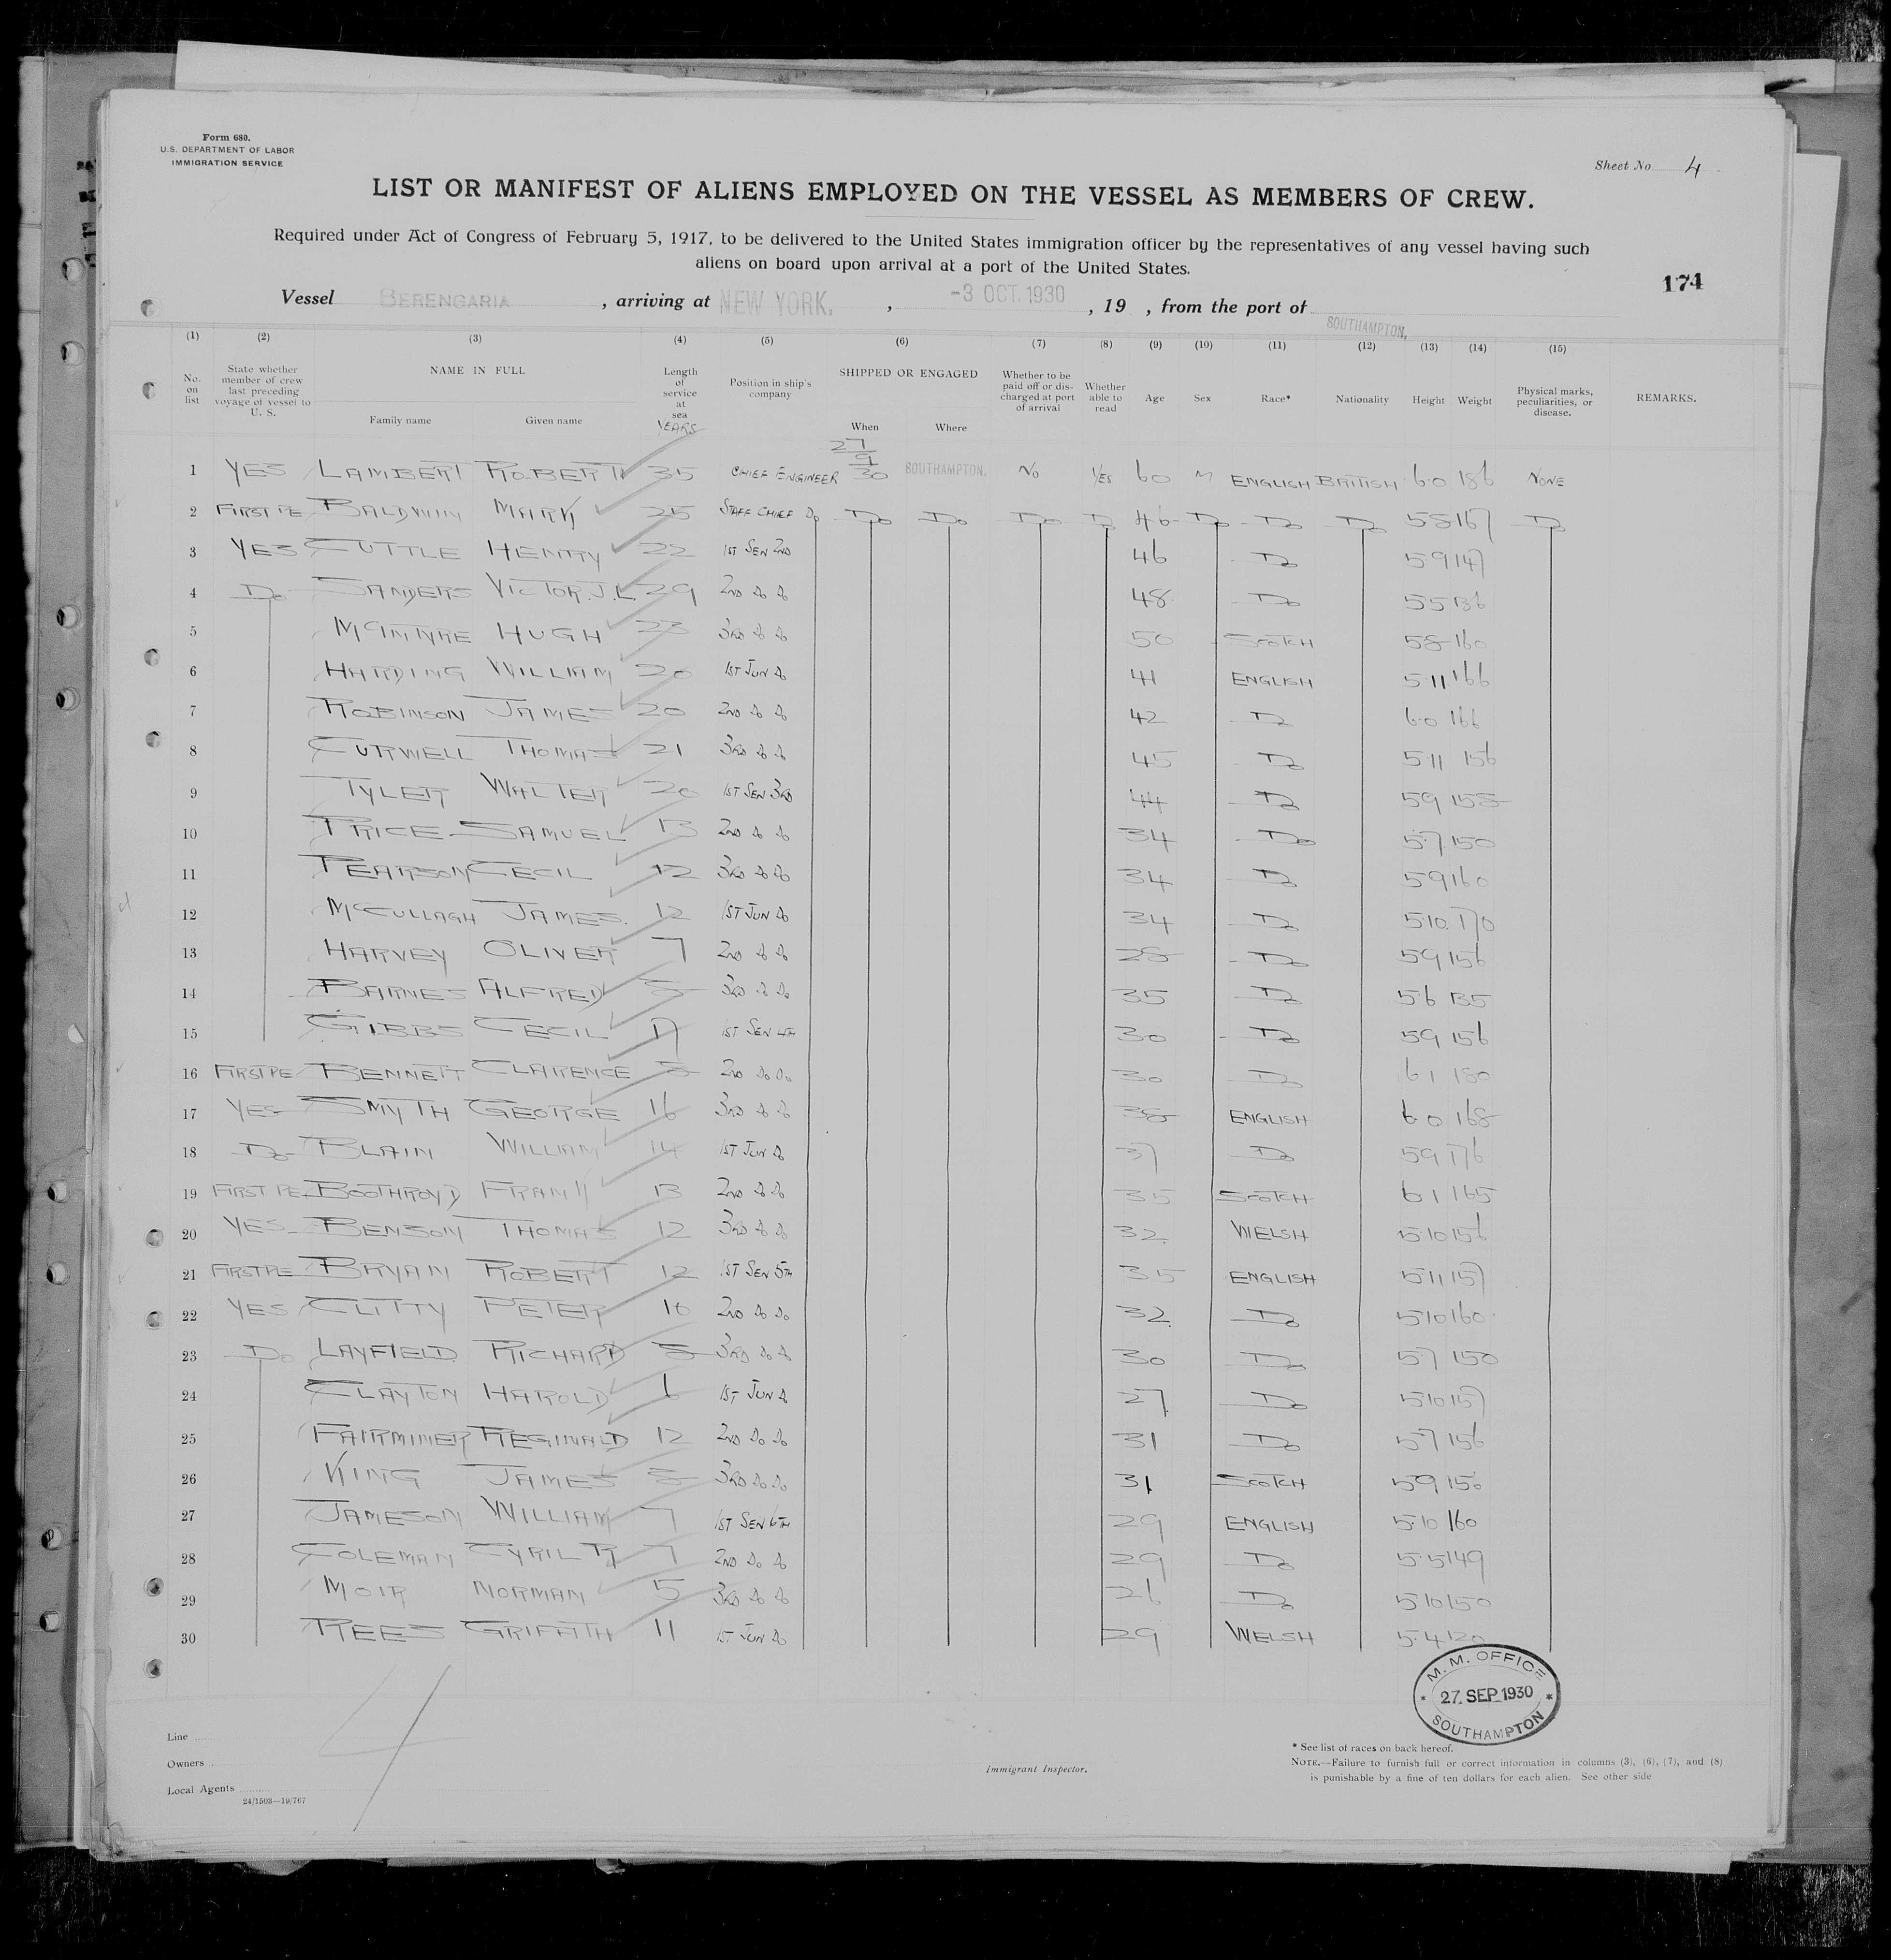 Form 680.
U.S. DEPARTMENT OF LABOR
IMMIGRATION SERVICE
Sheet No. 4
LIST OR MANIFEST OF ALIENS EMPLOYED ON THE VESSEL AS MEMBERS OF CREW.
Required under Act of Congress of February 5, 1917, to be delivered to the United States immigration officer by the representatives of any vessel having such
aliens on board upon arrival at a port of the United States.
174
Vessel BERENGARIA, arriving at NEW YORK, -3 OCT. 1930, 19 , from the port of SOUTHAMPTON,
(1) (2) (3) (4) (5) (6) (7) (8) (9) (10) (11) (12) (13) (14) (15)
No. on list
State whether member of crew last preceding voyage of vessel to U. S.
NAME IN FULL
Family name Given name
Length of service at sea
YEARS
Position in ship's company
SHIPPED OR ENGAGED
When Where
Whether to be paid off or discharged at port of arrival
Whether able to read
Age Sex Race* Nationality Height Weight
Physical marks, peculiarities, or disease.
REMARKS.
1 YES LAMBERT ROBERT W 35 CHIEF ENGINEER 27/9/30 SOUTHAMPTON. NO YES 60 M ENGLISH BRITISH 6 0 186 NONE
2 FIRST BALDWIN MARK 25 STAFF CHIEF Do Do Do Do Do 46 Do Do Do 5 8 167 Do
3 YES CUTTLE HENRY 22 1ST SEN 2ND 46 Do 5 9 147
4 Do SANDERS VICTOR. J. L. 29 2ND do do 48 Do 5 5 136
5 MCINTYRE HUGH 23 3RD do do 50 SCOTCH 5 8 160
6 HARDING WILLIAM 20 1ST JUN do 41 ENGLISH 5 11 166
7 ROBINSON JAMES 20 2ND do do 42 Do 6 0 166
8 CURWELL THOMAS 21 3RD do do 45 Do 5 11 156
9 TYLER WALTER 20 1ST SEN 3RD 44 Do 5 9 158
10 PRICE SAMUEL 13 2ND do do 34 Do 5 7 150
11 PEARSON CECIL 12 3RD do do 34 Do 5 9 160
12 MCCULLAGH JAMES. 12 1ST JUN do 34 Do 5 10 170
13 HARVEY OLIVER 7 2ND do do 28 Do 5 9 156
14 BARNES ALFRED 8 3RD do do 35 Do 5 6 135
15 GIBBS CECIL 1ST SEN 4TH 30 Do 5 9 156
16 FIRST BENNETT CLARENCE 8 2ND do do 30 Do 6 1 180
17 YES SMYTH GEORGE 16 3RD do do 38 ENGLISH 6 0 168
18 Do BLAIN WILLIAM 14 1ST JUN do 37 Do 5 9 176
19 FIRST BOOTHROYD FRANK 13 2ND do do 35 SCOTCH 6 1 165
20 YES BENSON THOMAS 12 3RD do do 32 WELSH 5 10 156
21 FIRST BRYAN ROBERT 12 1ST SEN 5TH 35 ENGLISH 5 11 157
22 YES CLITTY PETER 10 2ND do do 32 Do 5 10 160
23 Do LAYFIELD RICHARD 8 3RD do do 30 Do 5 7 150
24 CLAYTON HAROLD 6 1ST JUN do 27 Do 5 10 157
25 FAIRMINER REGINALD 12 2ND do do 31 Do 5 7 156
26 KING JAMES 8 3RD do do 31 SCOTCH 5 9 150
27 JAMESON WILLIAM 7 1ST SEN 6TH 29 ENGLISH 5 10 160
28 COLEMAN CYRIL R 7 2ND do do 29 Do 5 5 149
29 MOIR NORMAN 5 3RD do do 26 Do 5 10 150
30 REES GRIFFITH 11 1ST JUN do 29 WELSH 5 4 120
M. M. OFFICE
* 27. SEP 1930 *
SOUTHAMPTON
4
Line
Owners
Local Agents
24/1503—19/767
Immigrant Inspector.
* See list of races on back hereof.
NOTE.—Failure to furnish full or correct information in columns (3), (6), (7), and (8)
is punishable by a fine of ten dollars for each alien. See other side